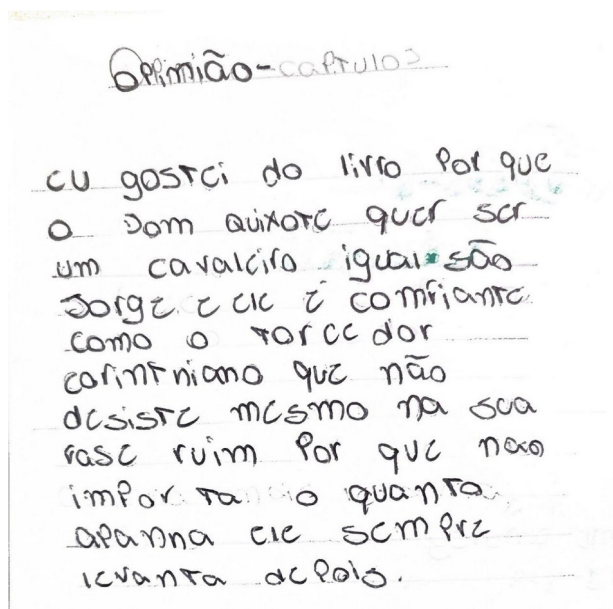 Opimião - capítulo 3
eu gostei do livro Por que
o Dom Quixote quer ser
um cavaleiro igual são
Jorge e ele é comfiante
como o torce dor
corintniano que não
desiste mesmo na sua
fase ruim Por que não
impor ta o quanto
apanna ele sem Pre
levanta depois.